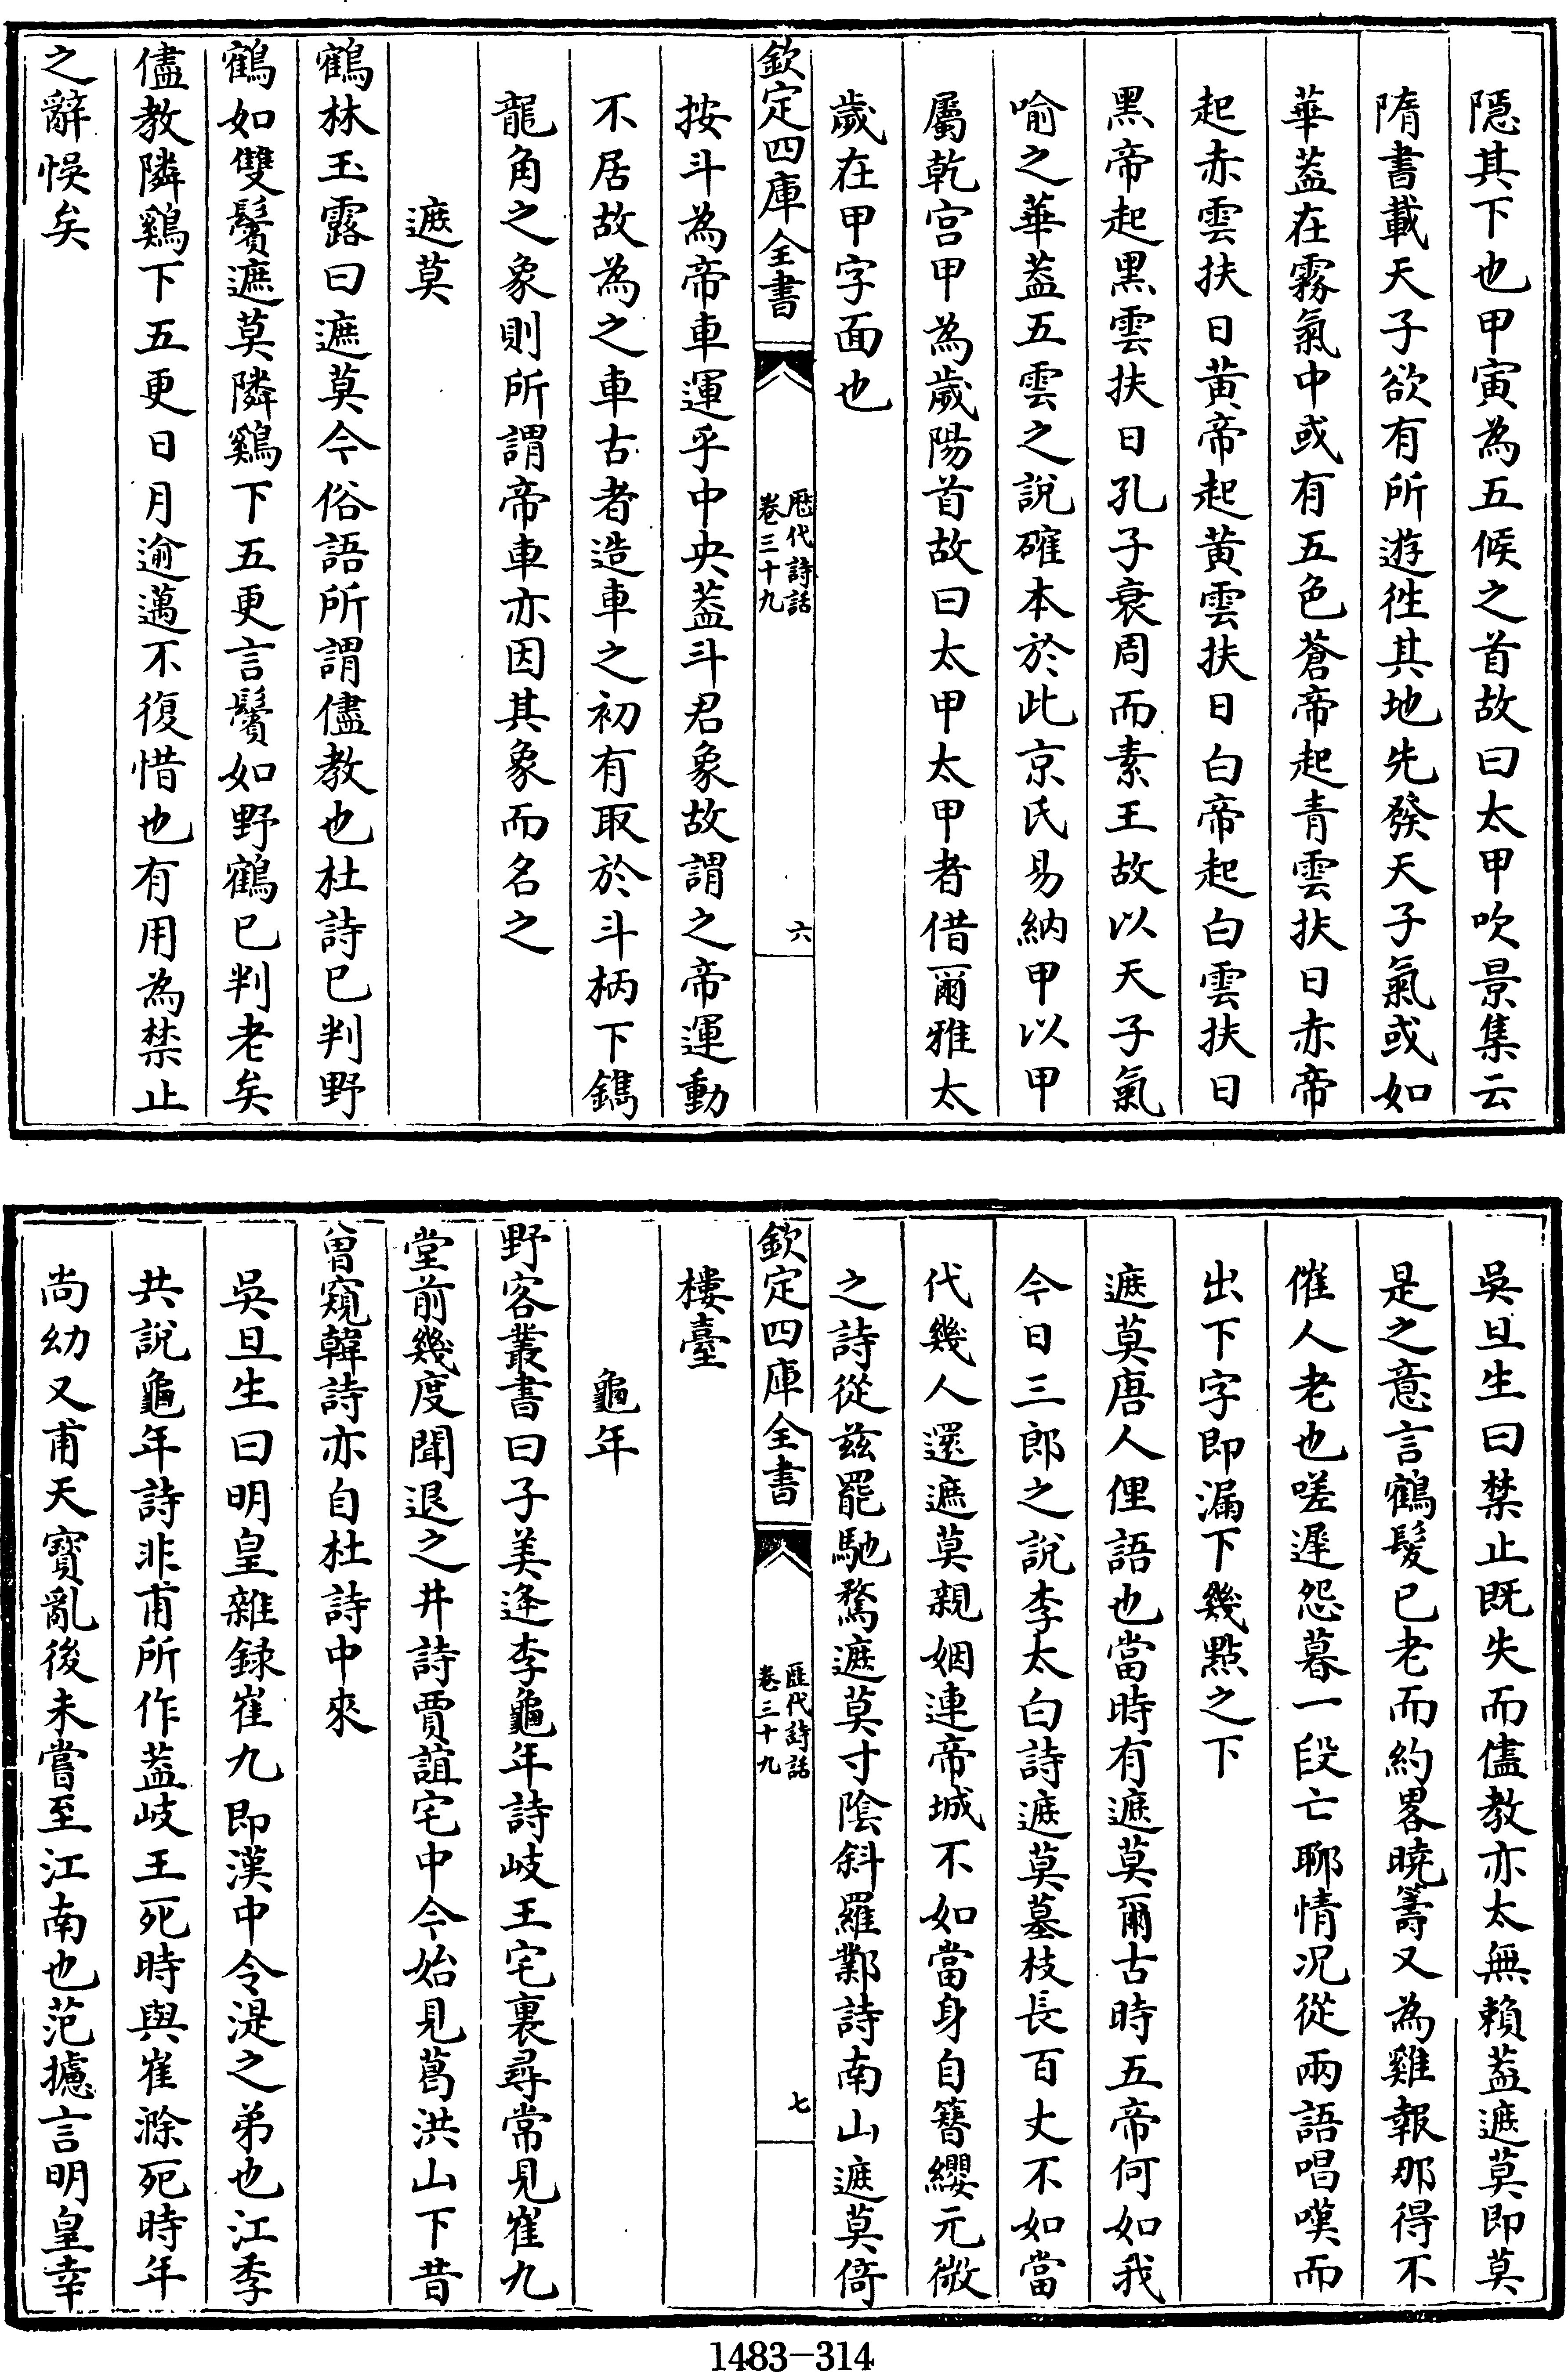 隱其下也甲寅為五候之首故曰太甲吹景集云
隋書載天子欲有所遊徃其地先發天子氣或如
華葢在霧氣中或有五色蒼帝起青雲扶日赤帝
起赤雲扶日黄帝起黄雲扶日白帝起白雲扶日
黑帝起黑雲扶日孔子衰周而素王故以天子氣
喻之華葢五雲之說確本於此京氏易納甲以甲
屬乾宫甲為歲陽首故曰太甲太甲者借爾雅太
歲在甲字面也
欽定四庫全書
歷代詩話
卷三十九
六
按斗為帝車運乎中央葢斗君象故謂之帝運動
不居故為之車古者造車之初有取於斗柄下鐫
龍角之象則所謂帝車亦因其象而名之
遮莫
鶴林玉露曰遮莫今俗語所謂儘教也杜詩已判野
鶴如雙鬢遮莫隣鷄下五更言鬢如野鶴已判老矣
儘教隣鷄下五更日月逾邁不復惜也有用為禁止
之辭悞矣
吳旦生曰禁止既失而儘教亦太無賴葢遮莫即莫
是之意言鶴髮已老而約畧曉籌又為雞報那得不
催人老也嗟遲怨暮一段亡聊情况從兩語唱嘆而
出下字即漏下幾點之下
遮莫唐人俚語也當時有遮莫爾古時五帝何如我
今日三郎之說李太白詩遮莫墓枝長百丈不如當
代幾人還遮莫親姻連帝城不如當身自簪纓元微
之詩從兹罷馳騖遮莫寸陰斜羅鄴詩南山遮莫倚
欽定四庫全書
歷代詩話
卷三十九
七
樓臺
龜年
野客叢書曰子美逢李龜年詩岐王宅裏尋常見崔九
堂前幾度聞退之井詩賈誼宅中今始見葛洪山下昔
曾窺韓詩亦自杜詩中來
吳旦生曰明皇雜録崔九即漢中令湜之弟也江季
共說龜年詩非甫所作葢岐王死時與崔滌死時年
尚幼又甫天寶亂後未嘗至江南也范攄言明皇幸
1483-314